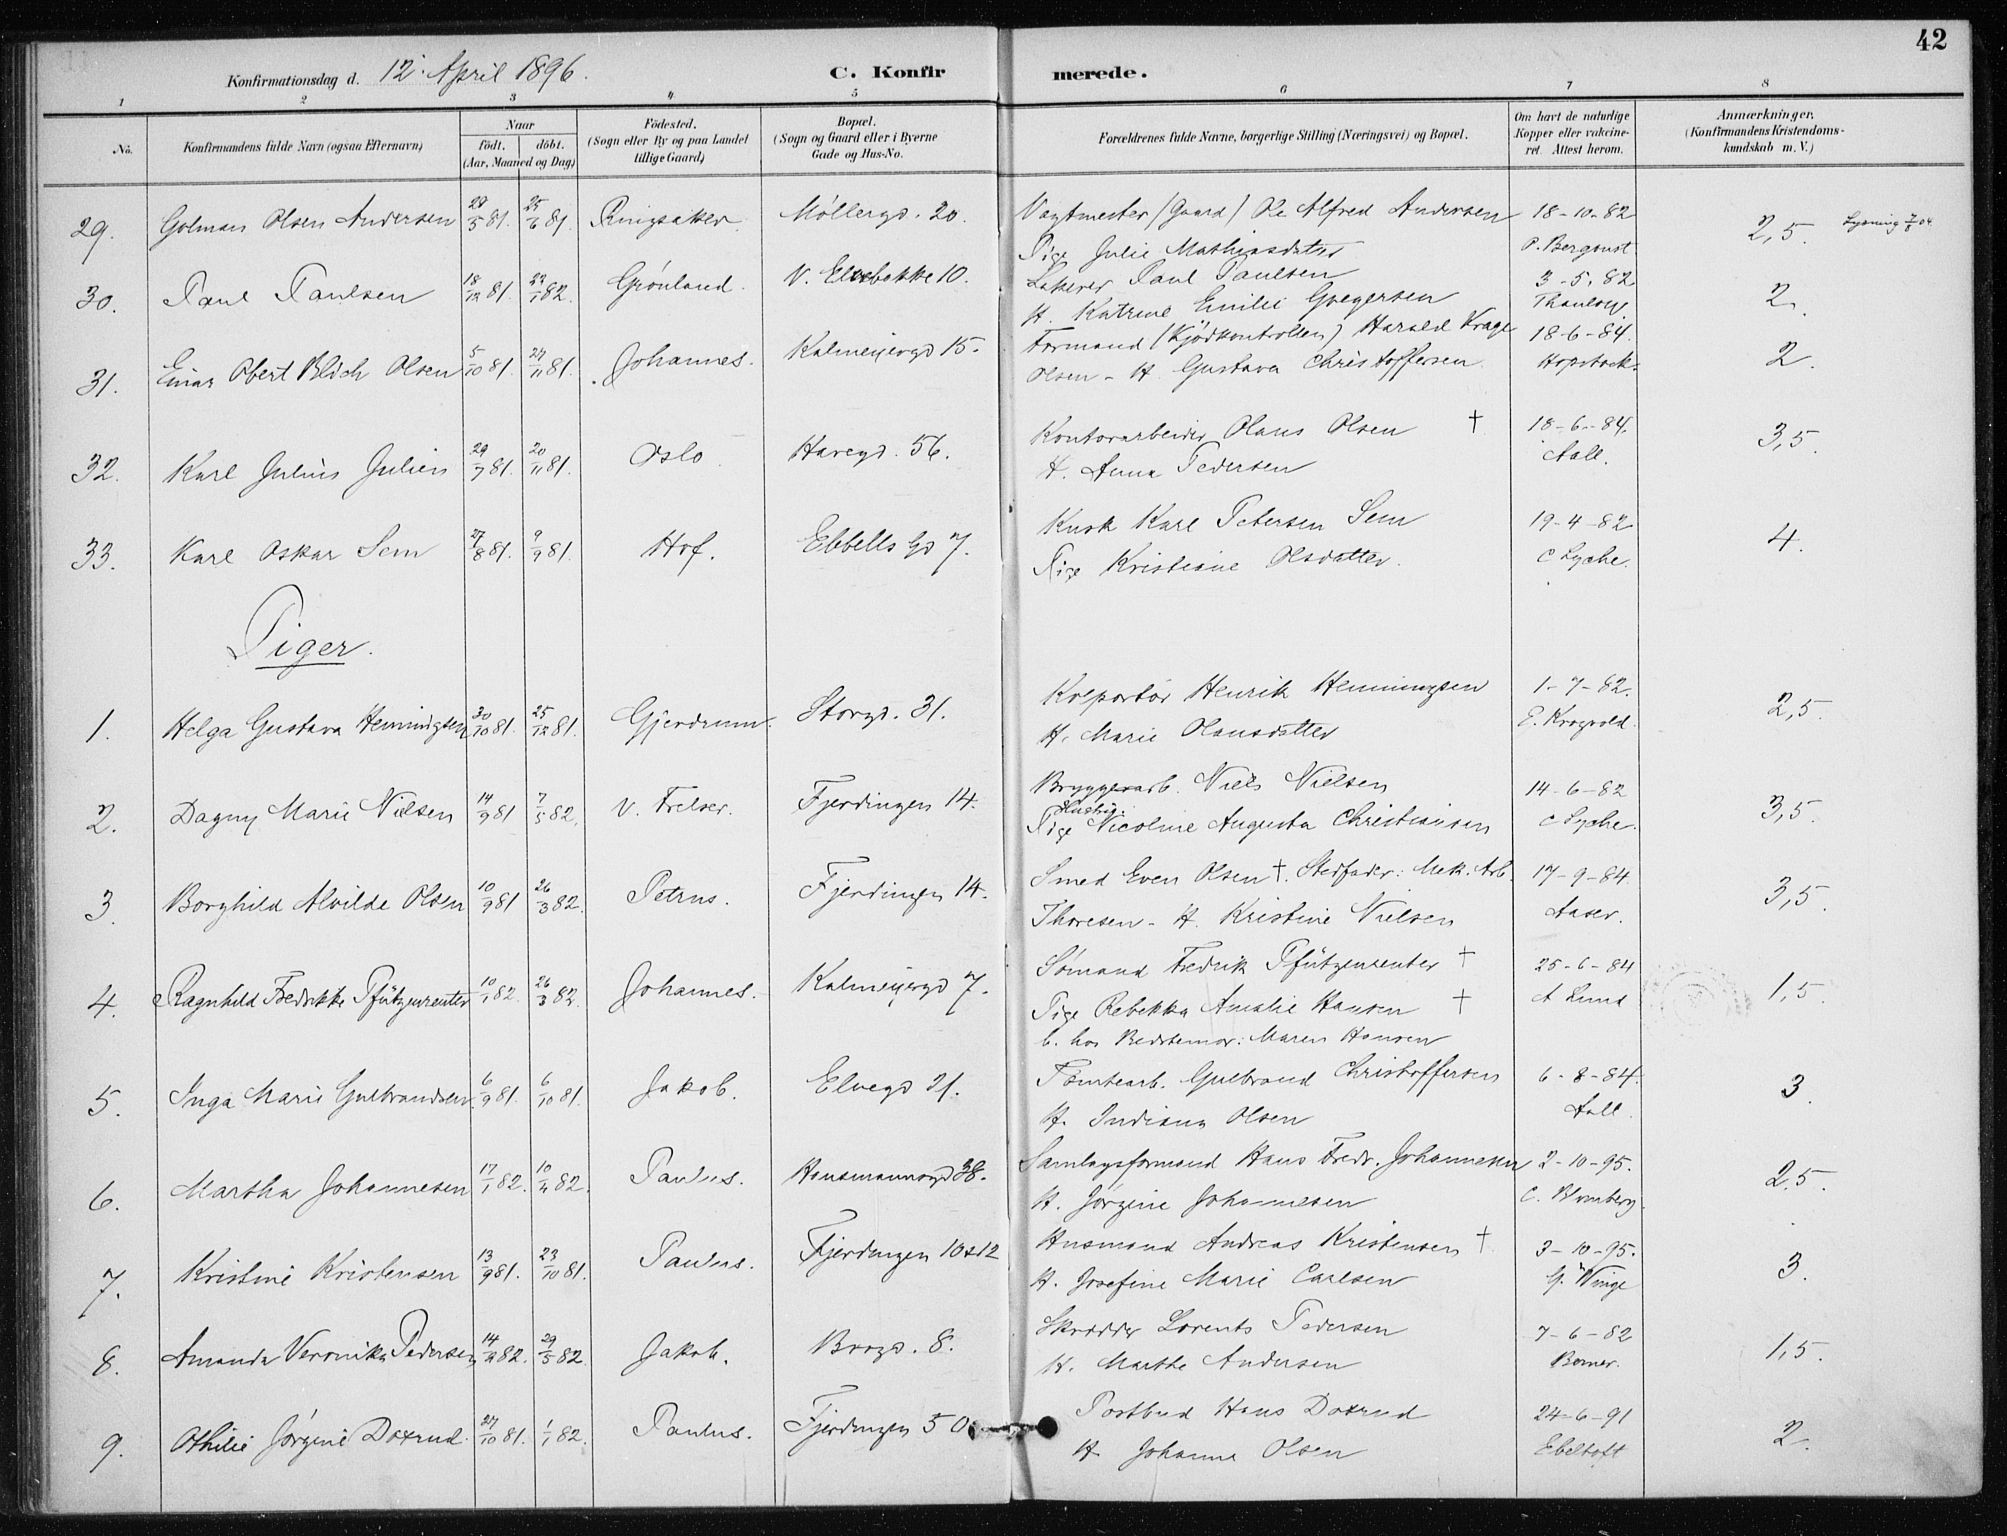 42
Konfirmationsdag d. 12. April 1896. C. Konfirmerede.
1 2 3 4 5 6 7 8
No. Konfirmandens fulde Navn (ogsaa Efternavn) Naar född. döbt. (Aar, Maaned og Dag) Födested. (Sogn eller By og paa Landet tillige Gaard) Bopæl. (Sogn og Gaard eller i Byerne Gade og Hus-No. Forældrenes fulde Navne, borgerlige Stilling (Næringsvei) og Bopæl. Om havt de naturlige Kopper eller vakcineret. Attest herom. Anmærkninger. (Konfirmandens Kristendomskundskab m. V.)
29. Olsen Andersen 5 81. 25/6 81. Ringsaker. Möllergd. 20. Vagtmester (Gaard) Ole Alfred Andersen 18-10-82 2,5. Lysning
Pige Julie Mathiasdatter P. Bergqvist
30. Paul Paulsen 18/12 81. 22/1 82. Grönland. V. Elvebakke 10. Paul Paulsen 3-5-82 2.
H. Katrine Emilie Gregersen Thaulow
31. Einar Obert Blich Olsen 5/10 81. 27/11 81. Johannes. Kalmeyergd 15. Formand (Kjödkontrollen) Harald Krage 18-6-84. 2.
Olsen - H. Gustava Christoffersen Hopstock.
32. Karl Julius Julien 29/7 81. 20/11 81. Oslo Havegd. 56. Kontorarbeider Olaus Olsen † 18-6-84. 3,5.
H. Anna Pedersen Aall.
33. Karl Oskar Sem 27/8 81. 9/9 81. Hof. Ebbells Gd 7. Kusk Karl Petersen Sem 19-4-82 4.
Pige Kristiane Olsdatter. C Lyche.
Piger.
1. Helga Gustava Henningsen 30/10 81. 25/12 81. Gjerdrum. Storgd. 31. Kolportör Henrik Henningsen 1-7-82. 2,5.
H. Marie Olausdatter E. Krogvold.
2. Dagny Marie Nielsen 14/9 81 7/5 82. V. Frelser. Fjerdingen 14. Bryggerarb. Niels Nielsen 14-6-82 3,5.
Hustru:
Pige Nicoline Augusta Christiansen C Lyche.
3. Borghild Alvilde Olsen 10/9 81 26/3 82. Petrus. Fjerdingen 14. Smed Even Olsen †. Stedfader: Mek. Arb. 17-9-84. 3,5.
Thoresen - H. Kristine Nielsen Aaser.
4. Ragnhild Fredrikke Pfützenreuter 10/1 82. 26/3 82. Johannes. Kalmeyergd 7. Sömand Fredrik Pfützenreuter † 25-6-84 1,5.
Pige Rebekka Amalie Hansen † A Lund
b. hos Bedstemor: Maren Hansen
5. Inga Marie Gulbrandsen 6/9 81. 6/10 81. Jakob. Elvegd 21. Tomtearb. Gulbrand Christoffersen 6-8-84. 3.
H. Indiana Olsen Aall.
6. Martha Johannesen 17/1 82. 10/4 82. Paulus. Hausmannsgd 38. Samlagsformand Hans Fredr. Johannesen 2-10-95. 2,5.
H. Jörgine Johannesen C. Blomberg.
7. Kristine Kristensen 13/9 81. 23/10 81. Paulus. Fjerdingen 10 & 12 Husmand Andreas Kristensen † 3-10-95. 3.
H. Josefine Marie Carlsen G. Winge
8. Amanda Veronika Pedersen 14/4 82. 29/5 82. Jakob. Brogd. 8. Skrædder Lorents Pedersen 7-6-82 1,5.
H. Marthe Andersen
9. Othilie Jörgine Doxrud 27/10 81. 1/1 82. Paulus. Fjerdingen 50 Postbud Hans Doxrud 24-6-91 2.
H. Johanne Olsen Ebeltoft